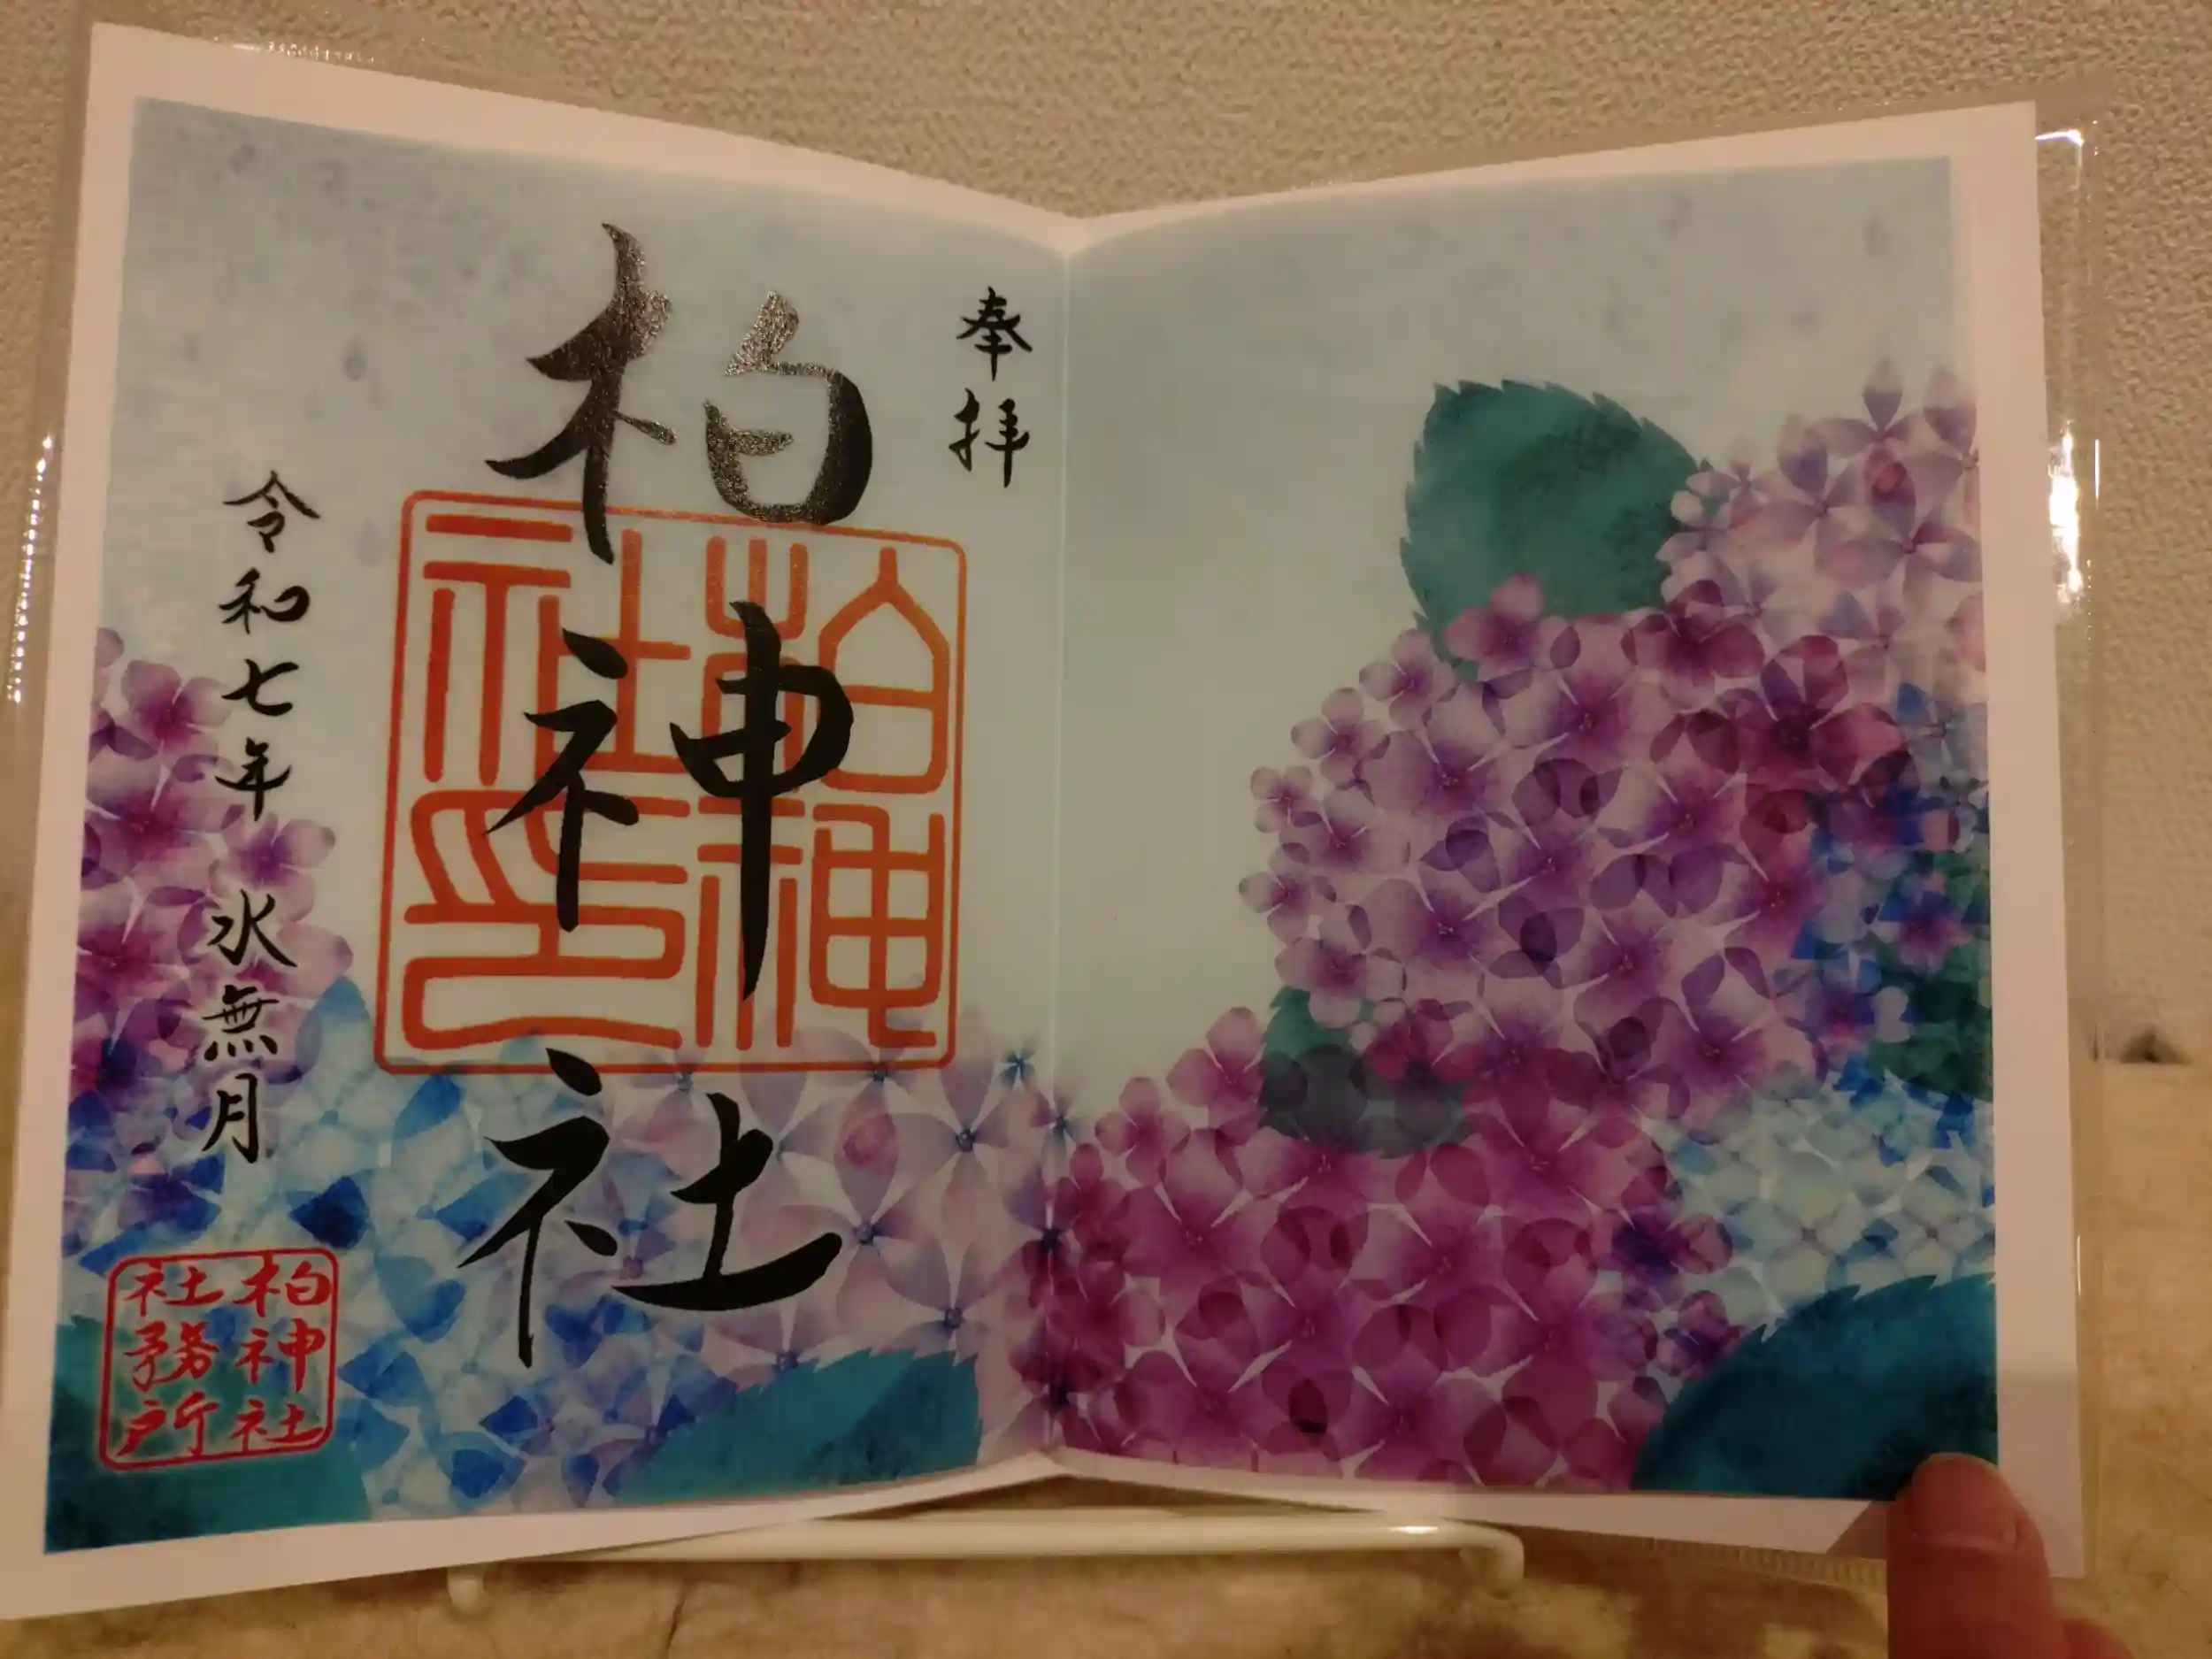 奉拝
柏神社
柏神社印
令和七年 水無月
柏神社
社務所